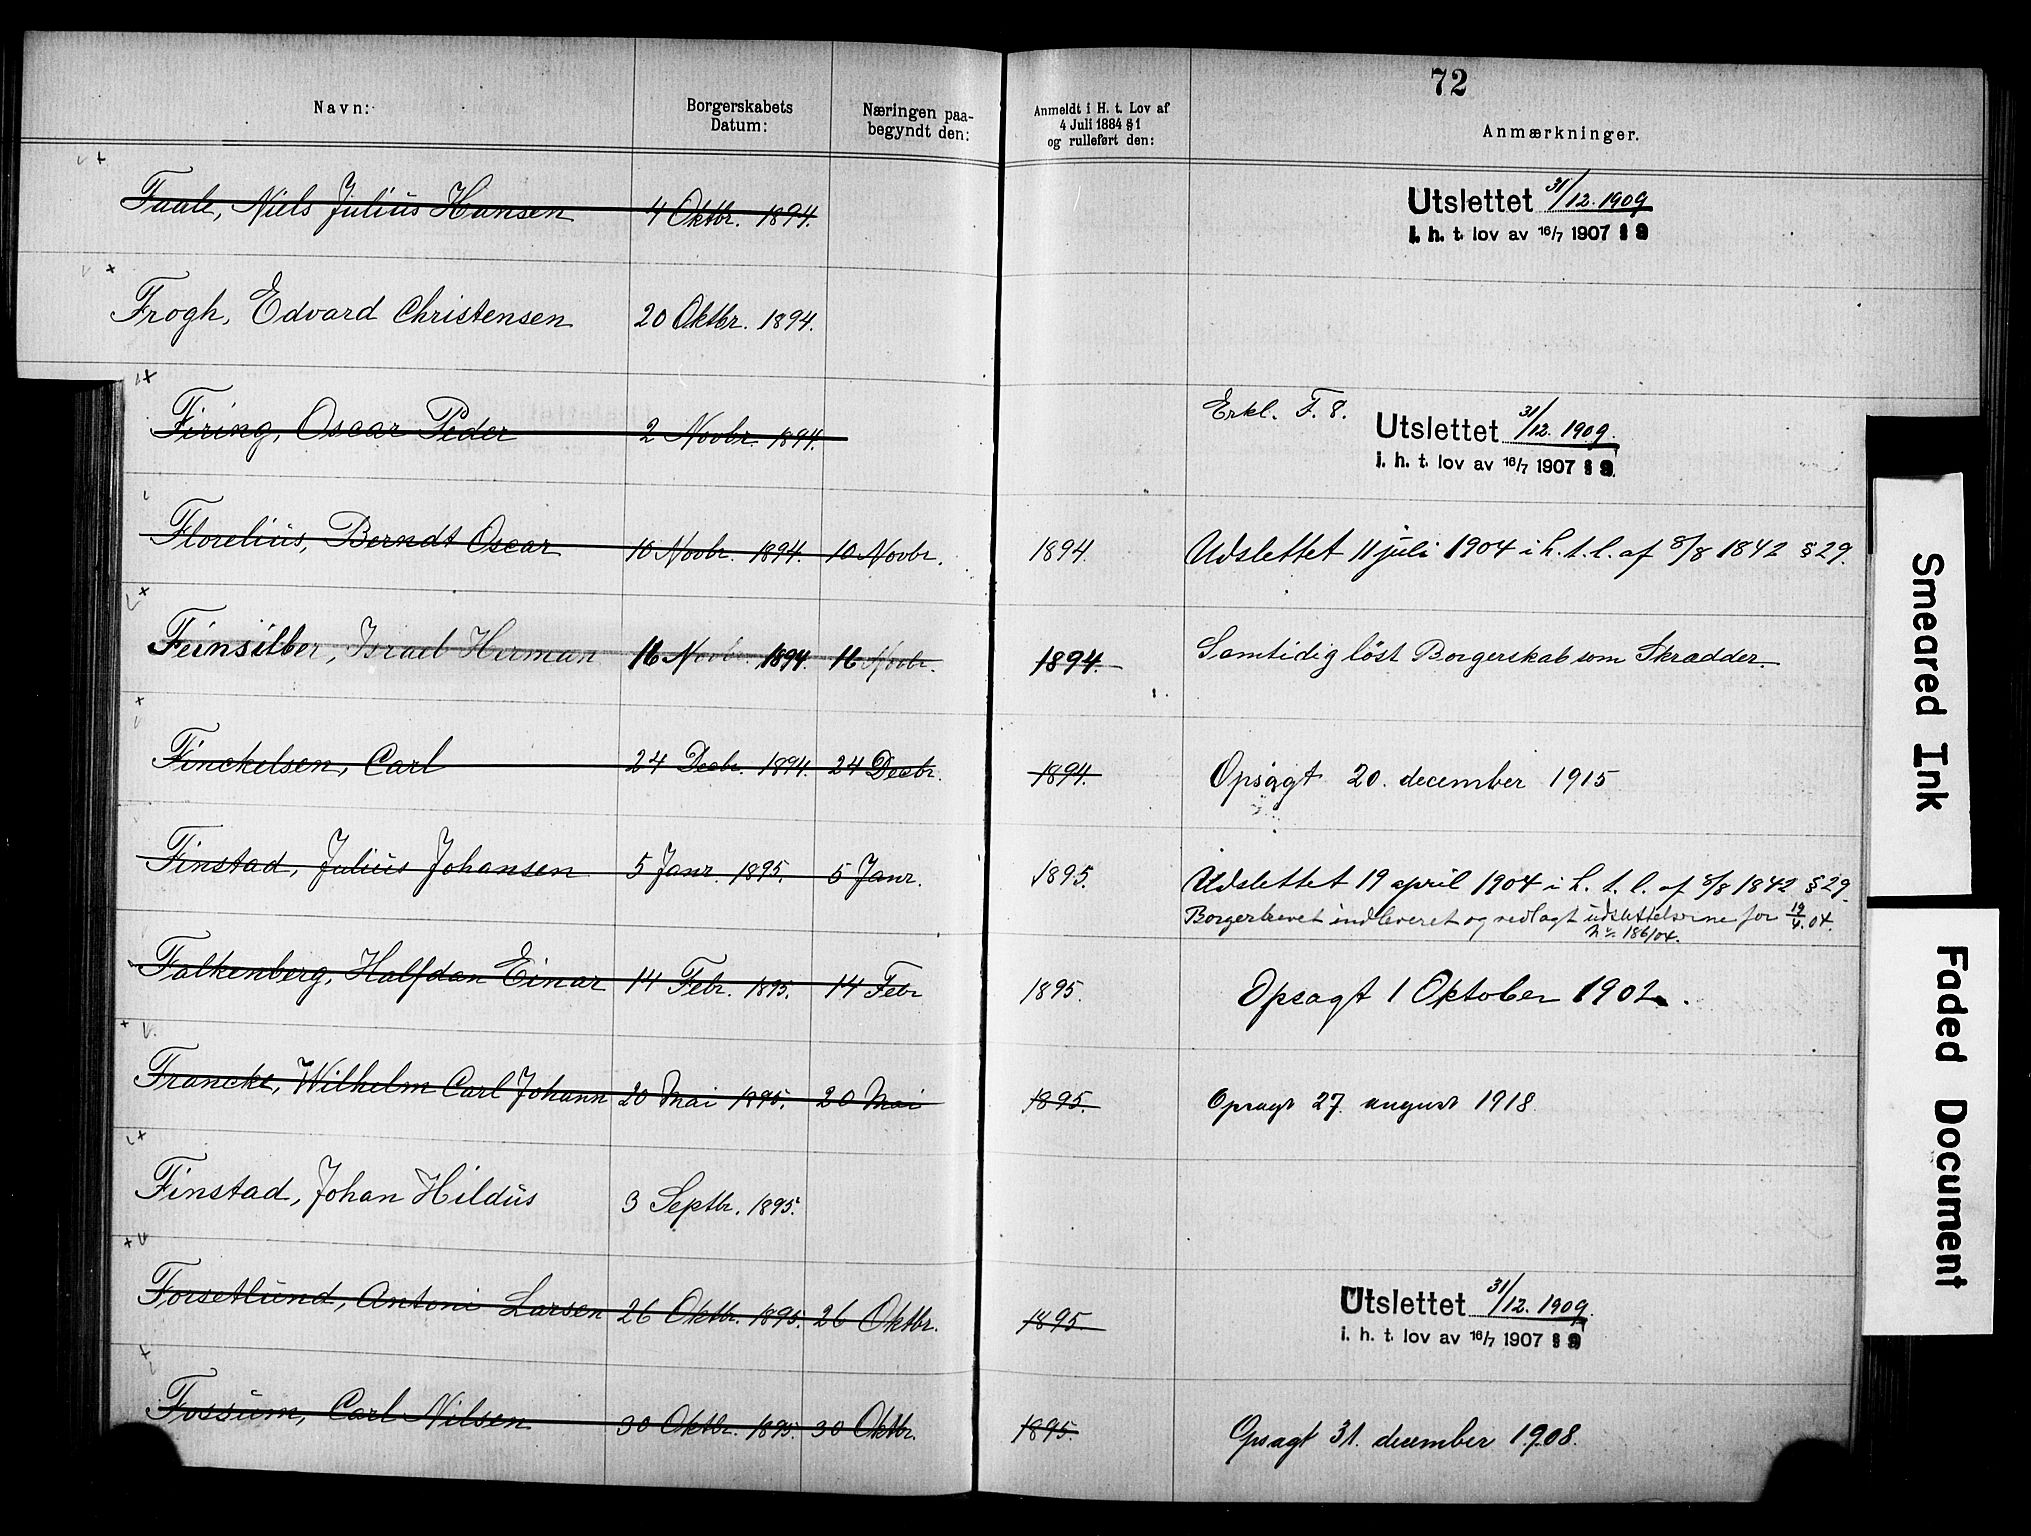 72
Navn: Borgerskabets Datum: Næringen paa-begyndt den: Anmeldt i H. t. Lov af 4 Juli 1884 § 1 og rulleført den: Anmærkninger.
Faale, Niels Julius Hansen 4 Oktbr. 1894. Utslettet 31/12. 1909
i. h. t. lov av 16/7 1907 § 9
Frogh, Edvard Christensen 20 Oktbr. 1894.
Firing, Oscar Peder 2 Novbr. 1894. Erkl. F. 8. Utslettet 31/12. 1909.
i. h. t. lov av 16/7 1907 § 9.
Florelius, Berndt Oscar 10 Novbr. 1894. 10 Novbr. 1894. Udslettet 11 juli 1904 i h. t. l. af 8/8 1842 § 29.
Feinsilber, Israel Herman 16 Novbr. 1894. 16 Novbr. 1894. Samtidig löst Borgerskab som Skrædder.
Finckelsen, Carl 24 Decbr. 1894. 24 Decbr. 1894. Opsagt 20. december 1915
Finstad, Julius Johansen 5 Janr. 1895. 5 Janr. 1895. Udslettet 19 april 1904 i h. t. l. af 8/8 1842 § 29.
Borgerbrevet indleveret og vedlagt udslettelserne for 19/4. 04.
No. 186/04.
Falkenberg, Halfdan Einar 14 Febr. 1895. 14 Febr 1895. Opsagt 1 Oktober 1902.
Francke, Wilhelm Carl Johann 20 Mai 1895. 20 Mai 1895. Opsagt 27. august 1918.
Finstad, Johan Hildus 3 Septbr. 1895.
Forsetlund, Antoni Larsen 26 Oktbr. 1895. 26 Oktbr. 1895. Utslettet 31/12. 1909.
i. h. t. lov av 16/7 1907 § 9
Fossum, Carl Nilsen 30 Oktbr. 1895. 30 Oktbr. 1895. Opsagt 31. december 1908.
Smeared Ink
Faded Document